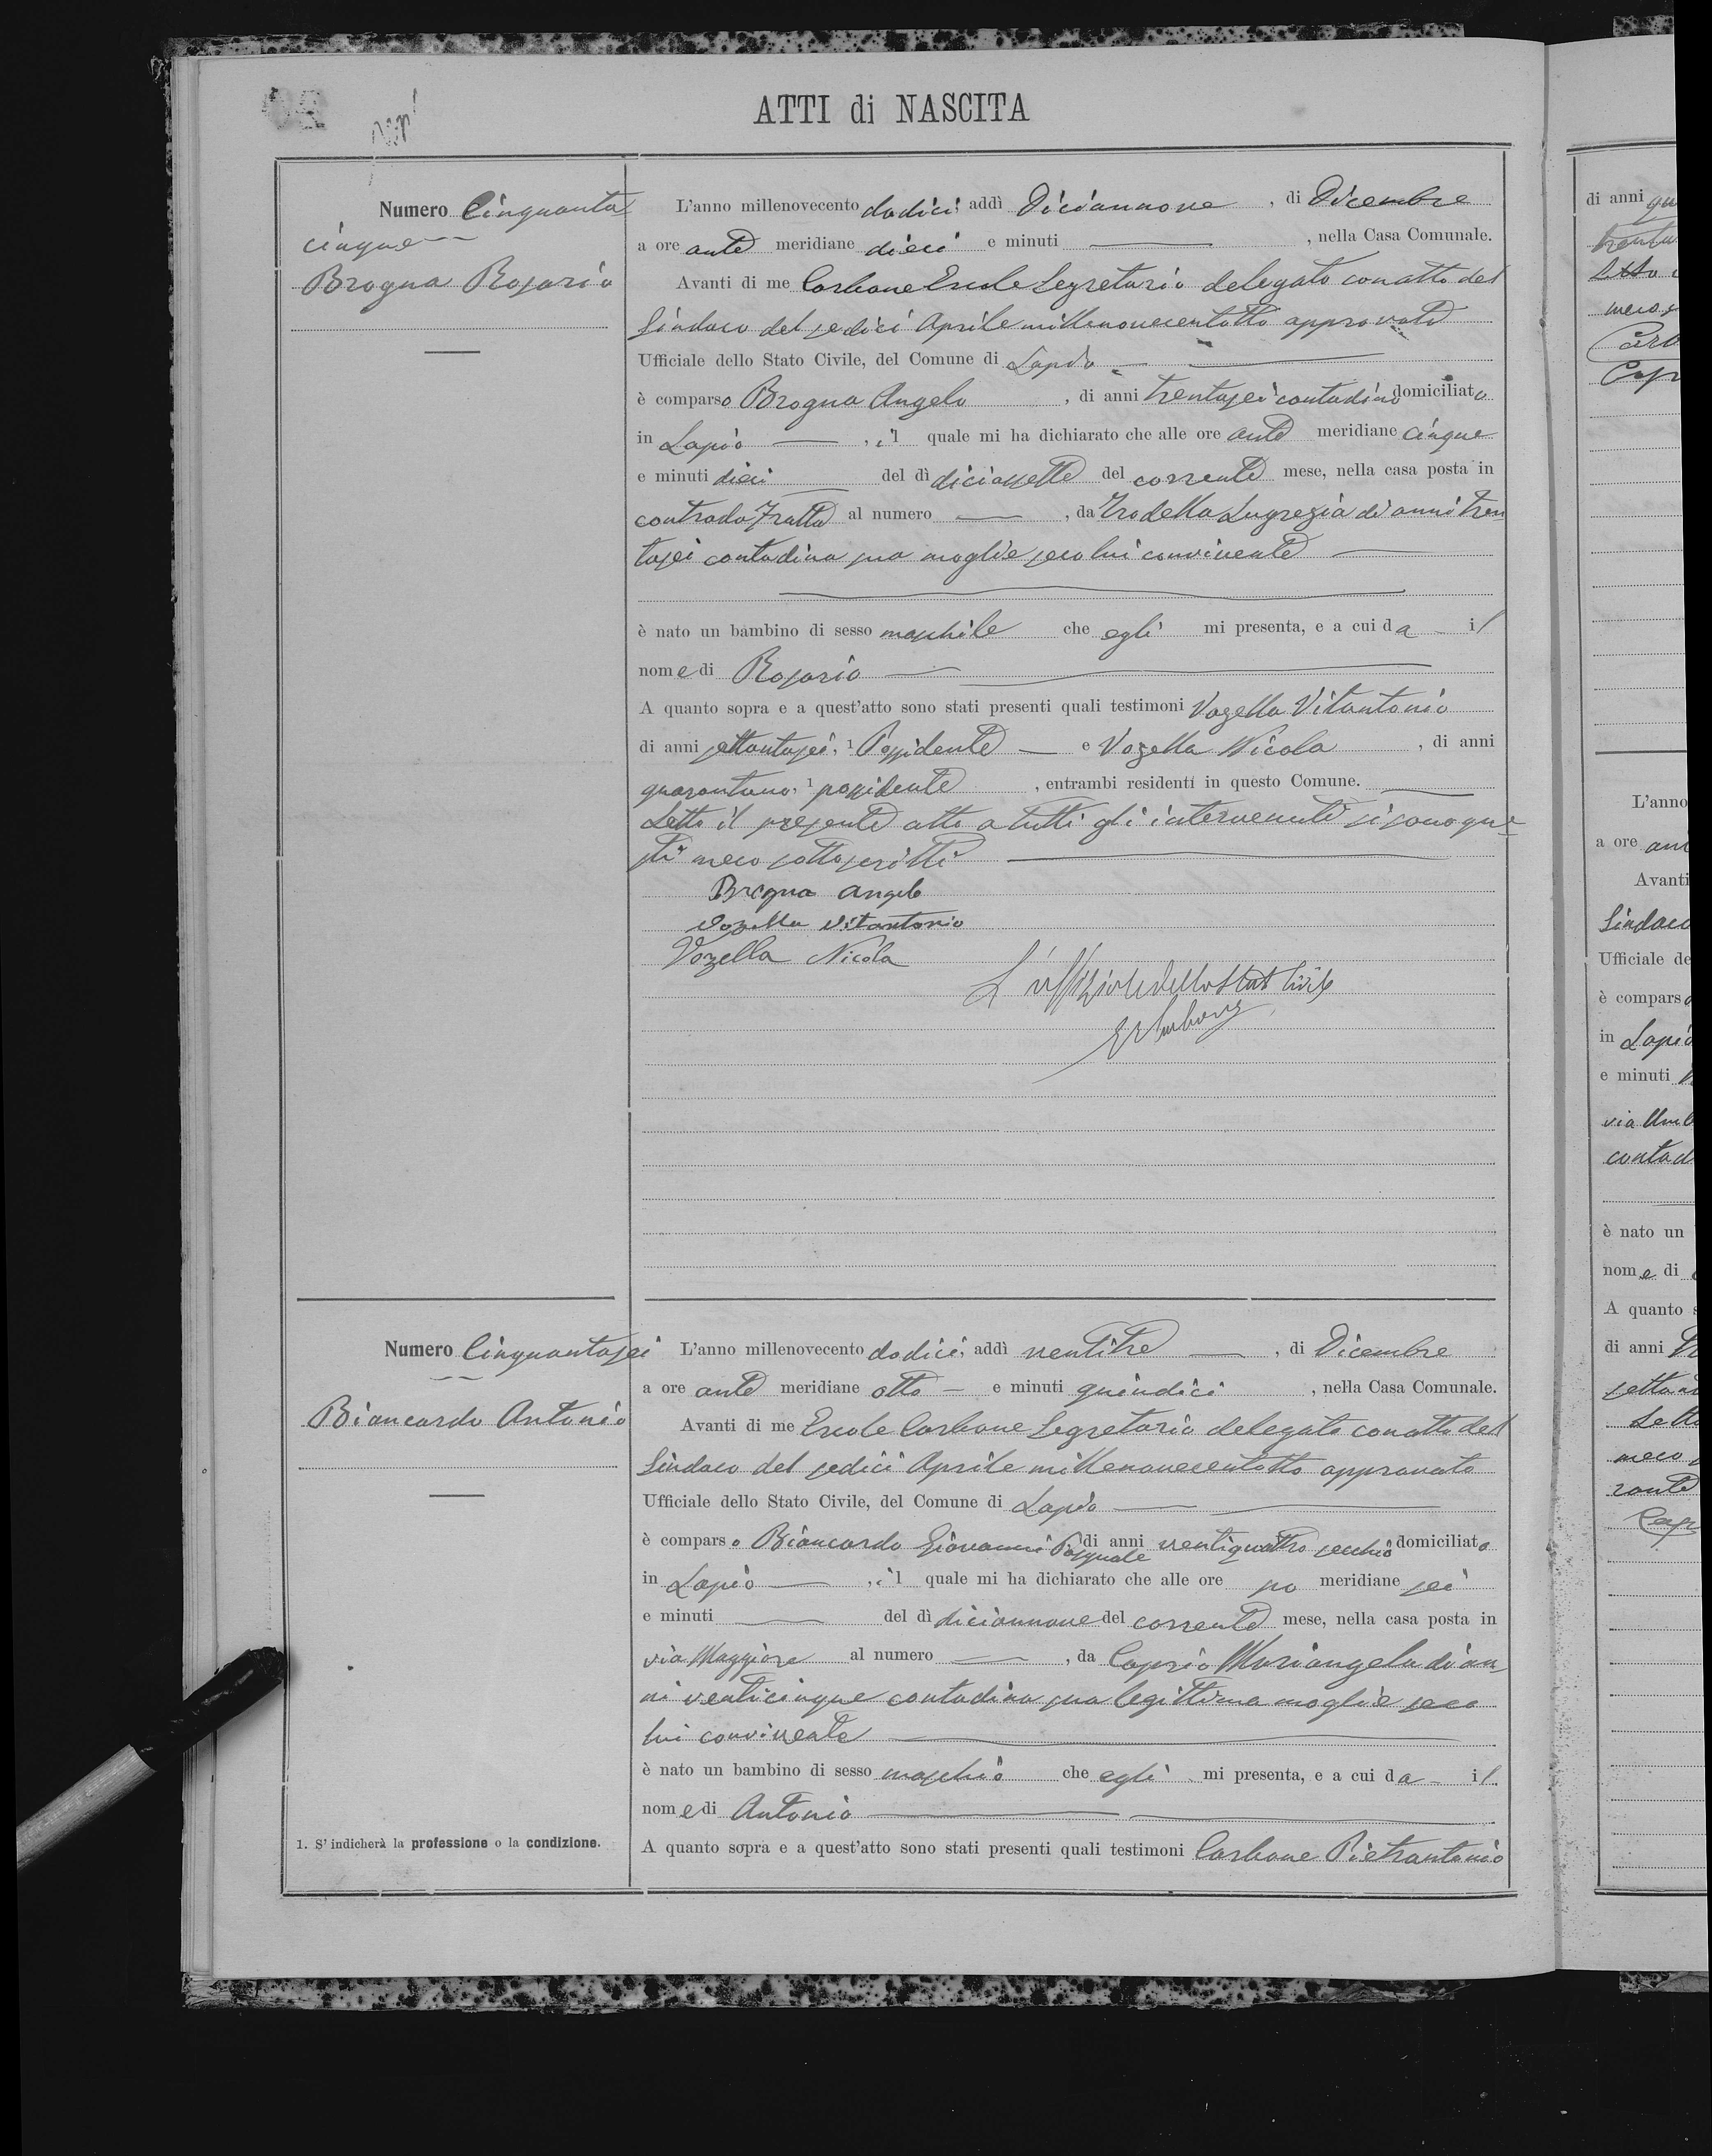 ATTI di NASCITA
Numero Cinquanta
cinque
Brogna Rosario
L'anno millenovecento dodici, addì Diciannove, di Dicembre
a ore ante meridiane dieci e minuti, nella Casa Comunale.
Avanti di me Carbone Ercole Segretario delegato con atto del
Sindaco del sedici Aprile millenovecentotto approvato
Ufficiale dello Stato Civile, del Comune di Lapio
è comparso Brogna Angelo, di anni trentasei contadino domiciliato
in Lapio, il quale mi ha dichiarato che alle ore ante meridiane cinque
e minuti dieci del dì diciassette del corrente mese, nella casa posta in
contrada Fratte al numero, da Trodella Lugrezia di anni tren
tasei contadina sua moglie seco lui convivente
è nato un bambino di sesso maschile che egli mi presenta, e a cui da il
nome di Rosario
A quanto sopra e a quest'atto sono stati presenti quali testimoni Vozella Vitantonio
di anni settantasei, 1 Possidente e Vozella Nicola, di anni
quarantuno, 1 possidente, entrambi residenti in questo Comune.
Letto il presente atto a tutti gli intervenuti si sono que
sti meco sottoscritti
Brogna Angelo
Vozella Vitantonio
Vozella Nicola
L'uffiziale dello Stato Civile
E Carbone
Numero Cinquantasei
Biancardo Antonio
L'anno millenovecento dodici, addì ventitre, di Dicembre
a ore ante meridiane otto e minuti quindici, nella Casa Comunale.
Avanti di me Ercole Carbone Segretario delegato con atto del
Sindaco del sedici Aprile millenovecentotto approvato
Ufficiale dello Stato Civile, del Comune di Lapio
è comparso Biancardo Giovanni Pasquale di anni ventiquattro domiciliato
in Lapio, il quale mi ha dichiarato che alle ore po meridiane sei
e minuti del dì diciannove del corrente mese, nella casa posta in
via Maggiore al numero, da Caprio Mariangela di an
ni venticinque contadina sua legittima moglie seco
lui convivente
è nato un bambino di sesso maschio che egli mi presenta, e a cui da il
nome di Antonio
1. S'indicherà la professione o la condizione.
A quanto sopra e a quest'atto sono stati presenti quali testimoni Carbone Pietrantonio
di anni
meco
L'anno
a ore
Avanti
Sindaco
Ufficiale de
è comparso
in Lapio
e minuti
contad
è nato un
nome di
A quanto s
di anni
meco